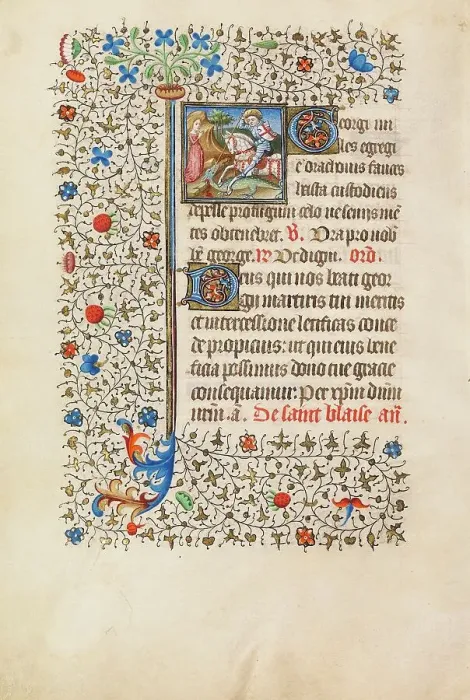 Georgi mi
les egregi
e oracionis fautes
Xpista custodiens
repelle
tes obtenebret. V. Ora pro nob
be george. R. Ut digni. oro.
Deus qui nos beati geor
gii martiris tui meritis
et intercessione letificas conce
de propicius: ut qui eius bene
ficia possimus dono tue gracie
consequamur: Per xpm dnm
nrm. a. De saint blaise an.